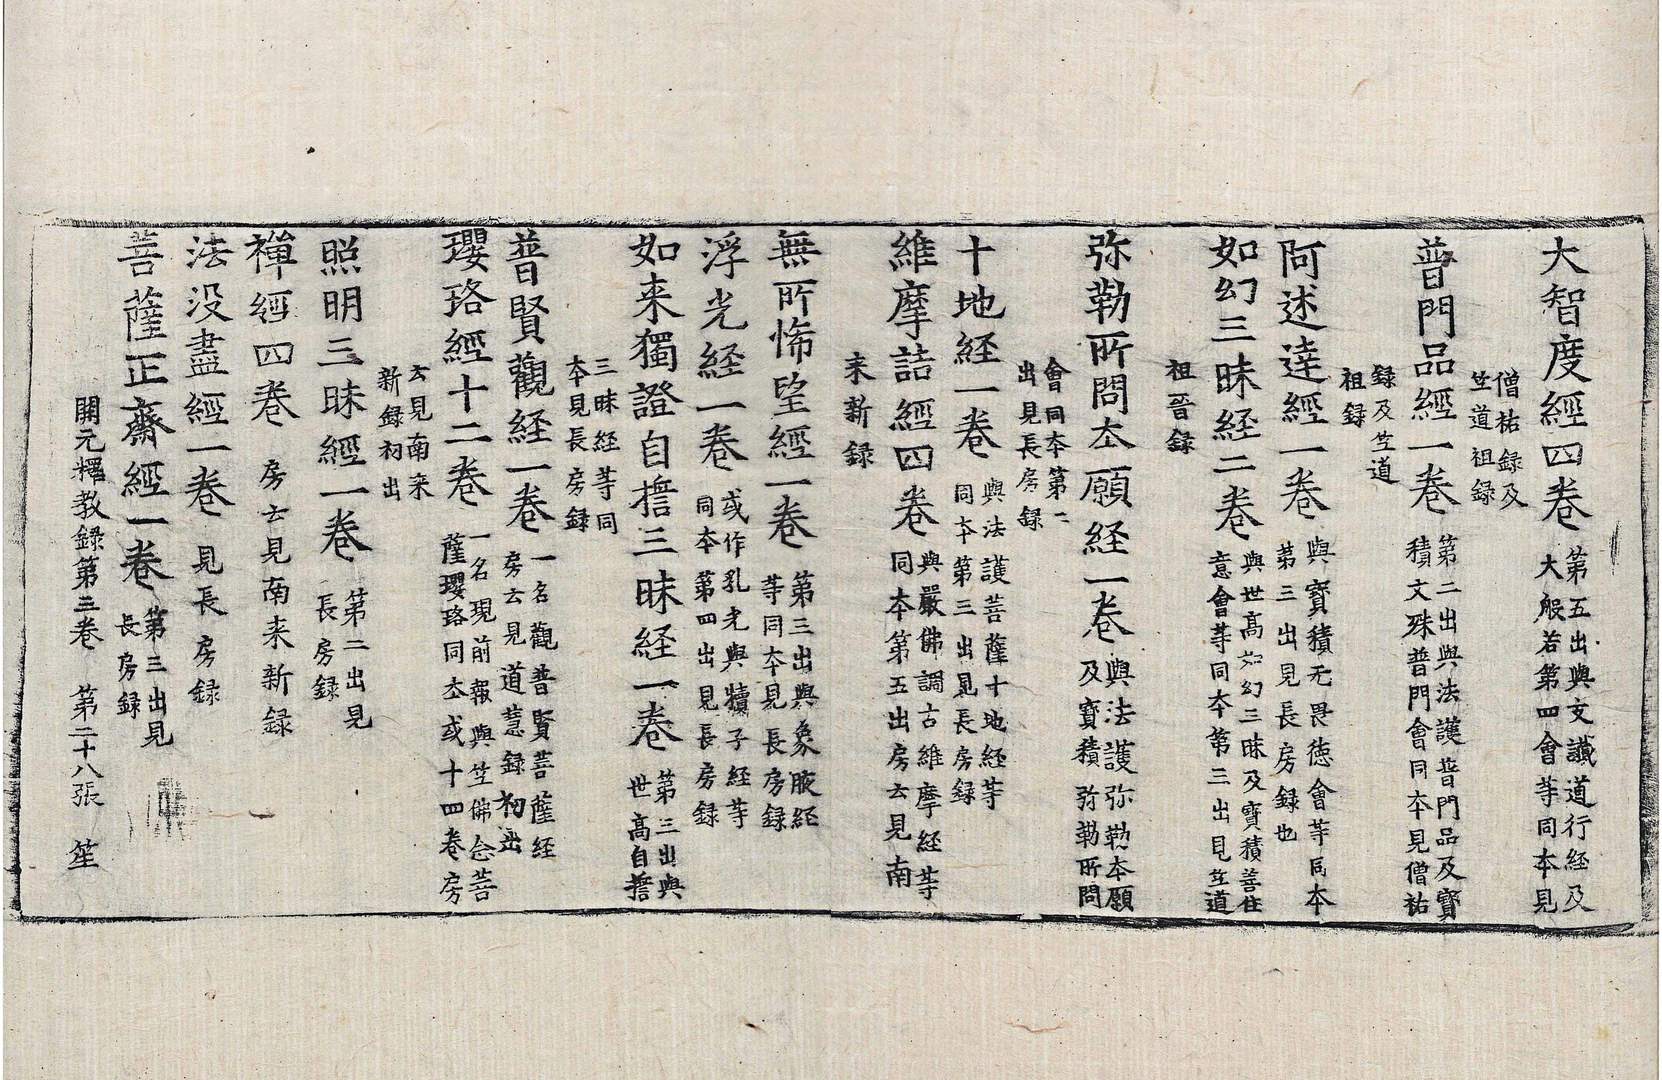 大智度經四卷 第五出與支讖道行经及
大般若第四會等同本見
僧祐録及
竺道祖録
普門品經一卷 第二出與法護普門品及寳
積文殊普門會同本見僧祐
録及竺道
祖録
阿述達經一卷 與寳積无畏徳會等同本
第三出見長房録也
如幻三昧经二卷 與世髙如幻三昧及寳積善住
意會等同本第二出見竺道
祖晉録
弥勒所問本願经一卷 與法護弥勒本願
及寳積弥勒所問
會同本第二
出見長房録
十地经一卷 與法護菩薩十地经等
同本第三出見長房録
維摩詰經四卷 與嚴佛調古維摩经等
同本第五出房云見南
来新録
無所悕望經一卷 第三出與象腋经
等同本見長房録
浮光经一卷 或作孔光與犢子经等
同本第四出見長房録
如来獨證自誓三昧经一卷 第三出與
世髙自誓
三昧经等同
本見長房録
普賢觀经一卷 一名觀普賢菩薩经
房云見道慧録初出
瓔珞經十二卷 一名現前報與竺佛念菩
薩瓔珞同本或十四卷房
云見南来
新録初出
照明三昧經一卷 第二出見
長房録
禅經四卷 房云見南来新録
法没盡經一卷 見長房録
菩薩正齋經一卷 第三出見
長房録
開元釋教録第三卷 第二十八張 笙